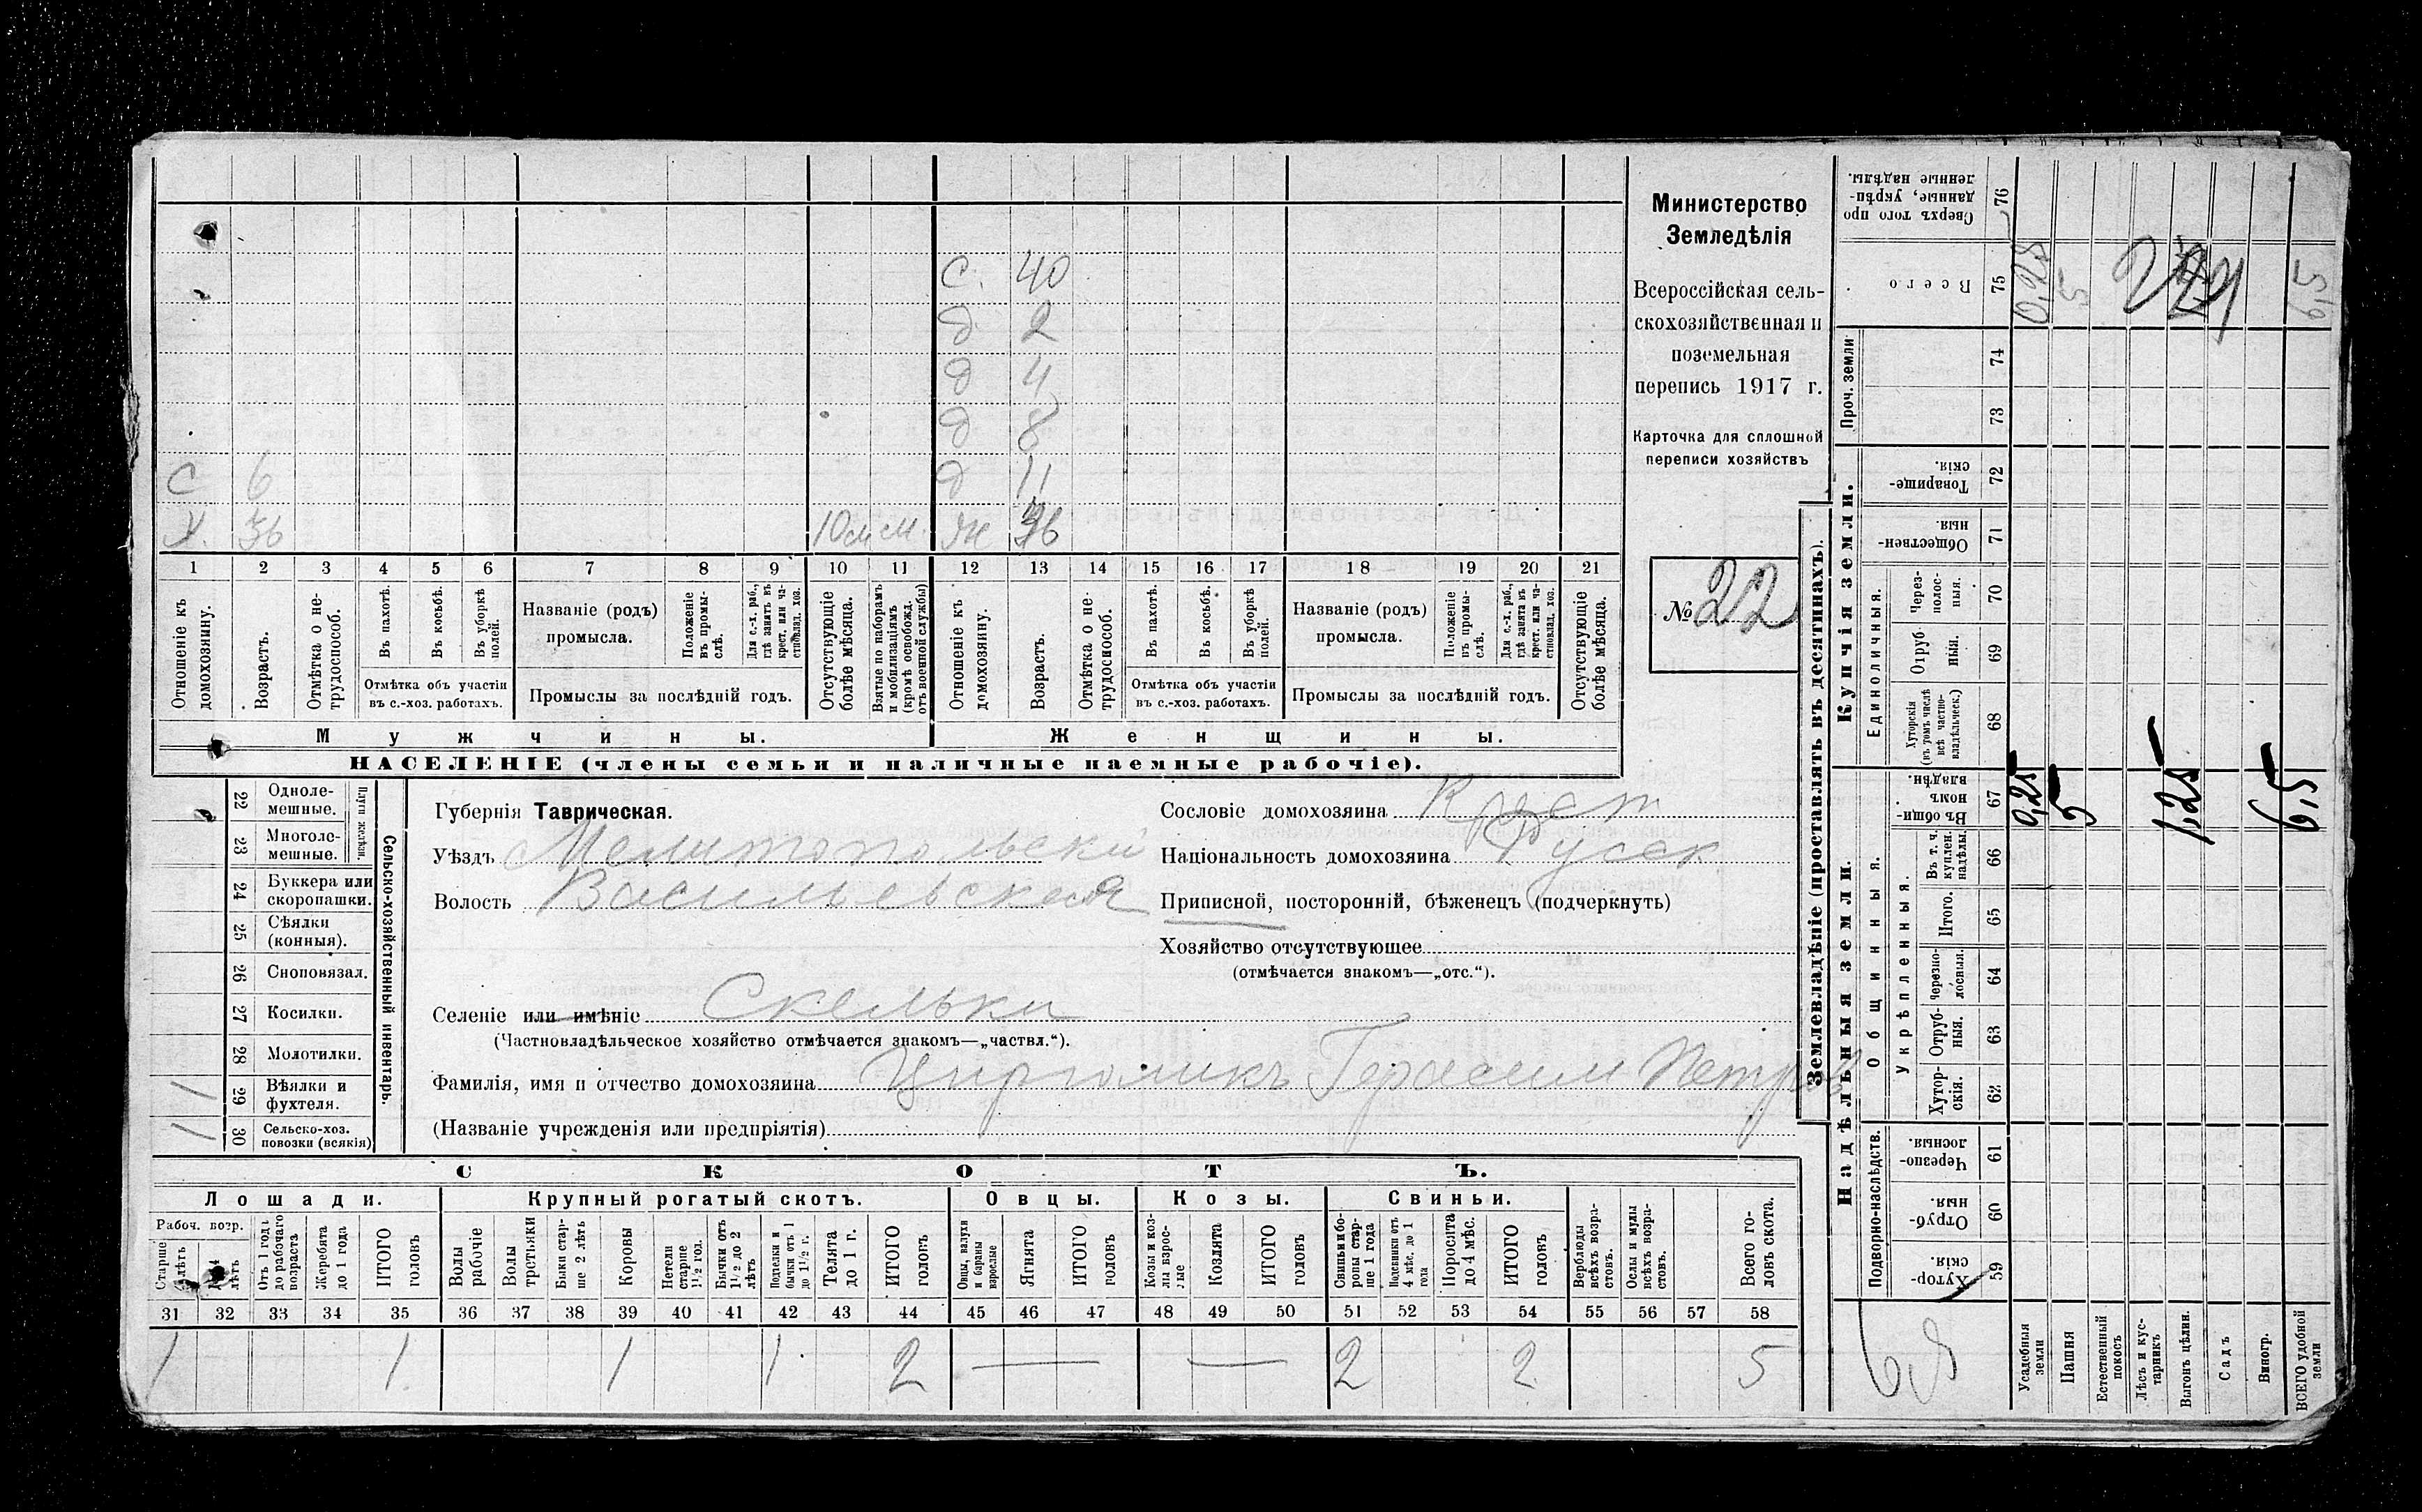 Министерство
Земледѣлія
Всероссійская сель-
скохозяйственная и
поземельная
перепись 1917 г.
Карточка для сплошной
переписи хозяйствъ
№ 22
С. 40
Д 2
Д 4
Д 8
С 6 Д 11
Х. 36 10 м см. Ж 36
1 2 3 4 5 6 7 8 9 10 11 12 13 14 15 16 17 18 19 20 21
Отношеніе къ домохозяину.
Возрастъ.
Отмѣтка о не-трудоспособ.
Въ пахотѣ.
Въ косьбѣ.
Въ уборкѣ полей.
Отмѣтка объ участіи
въ с.-хоз. работахъ.
Названіе (родъ)
промысла.
Положеніе въ промы-слѣ.
Для с.-х. раб., гдѣ занятъ въ крест. или ча-стновлад. хоз.
Промыслы за послѣдній годъ.
Отсутствующіе болѣе мѣсяца.
Взятые по наборамъ и мобилизаціямъ (кромѣ освобожд. отъ военной службы)
Отношеніе къ домохозяину.
Возрастъ.
Отмѣтка о не-трудоспособ.
Въ пахотѣ.
Въ косьбѣ.
Въ уборкѣ полей.
Отмѣтка объ участіи
въ с.-хоз. работахъ.
Названіе (родъ)
промысла.
Положеніе въ промы-слѣ.
Для с.-х. раб., гдѣ занята въ крест. или ча-стновлад. хоз.
Промыслы за послѣдній годъ.
Отсутствующіе болѣе мѣсяца.
Мужчины. Женщины.
НАСЕЛЕНІЕ (члены семьи и наличные наемные рабочіе).
Сельско-хозяйственный инвентарь.
Плуги желѣзн.
22 Одноле-
мешные.
23 Многоле-
мешные.
24 Буккера или
скоропашки.
25 Сѣялки
(конныя).
26 Сноповязал.
27 Косилки.
28 Молотилки.
1 29 Вѣялки и
фухтеля.
1 30 Сельско-хоз.
повозки (всякія)
Губернія Таврическая.
Уѣздъ Мелитопольскій
Волость Васильевская
Сословіе домохозяина Крест
Національность домохозяина Русск
Приписной, посторонній, бѣженецъ (подчеркнуть)
Хозяйство отсутствующее
(отмѣчается знакомъ—„отс.“).
Селеніе или имѣніе Скельки
(Частновладѣльческое хозяйство отмѣчается знакомъ—„частвл.“).
Фамилія, имя и отчество домохозяина Герасим Петров
(Названіе учрежденія или предпріятія)
СКОТЪ.
Лошади. Крупный рогатый скотъ. Овцы. Козы. Свиньи.
Рабоч. возр.
Старше лѣтъ
лѣтъ
Отъ 1 года до рабочаго возраста
Жеребята до 1 года
ИТОГО головъ
Волы рабочіе
Волы третьяки
Быки стар-ше 2 лѣтъ
Коровы
Нетели старше 1½ год.
Бычки отъ 1½ до 2 лѣтъ
Подтелки и бычки отъ 1 до 1½ г.
Телята до 1 г.
ИТОГО головъ
Овцы, валухи и бараны взрослые
Ягнята
ИТОГО головъ
Козы и коз-лы взрос-лые
Козлята
ИТОГО головъ
Свиньи и бо-ровы стар-ше 1 года
Подсвинки отъ 4 мѣс. до 1 года
Поросята до 4 мѣс.
ИТОГО головъ
Верблюды всѣхъ возра-стовъ.
Ослы и мулы всѣхъ возра-стовъ.
Всего го-ловъ скота.
31 32 33 34 35 36 37 38 39 40 41 42 43 44 45 46 47 48 49 50 51 52 53 54 55 56 57 58
1 1 1 1 2 — — 2 2 5
Землевладѣніе (проставлять въ десятинахъ).
Надѣльныя земли. Купчія земли. Проч. земли
Подворно-наслѣдств. Общинныя. Единоличныя.
Укрѣпленныя.
Сверхъ того про
данные, укрѣп-
ленные надѣлы.
76
Всего
75 0,25 5 6,5
74
73
Товарище-
скія.
72
Обществен-
ныя.
71
Через-
полос-
ныя.
70
Отруб
ныя.
69
Хуторскія
(въ томъ числѣ
всѣ частно-
владѣльческ.)
68
Въ общин-
номъ
владѣн.
67 0,25 5 1,25 6,5
Въ т. ч.
куплен.
надѣлы.
66
Итого.
65
Черезпо-
лосныя.
64
Отруб-
ныя.
63
Хутор-
скія.
62
Черезпо-
лосныя.
61
Отруб-
ныя
60
Хутор-
скія.
59
Усадебныя земли
Пашня
Естественный покосъ
Лѣсъ и кус-тарникъ
Выгонъ цѣлин.
Садъ
Виногр.
ВСЕГО удобной земли